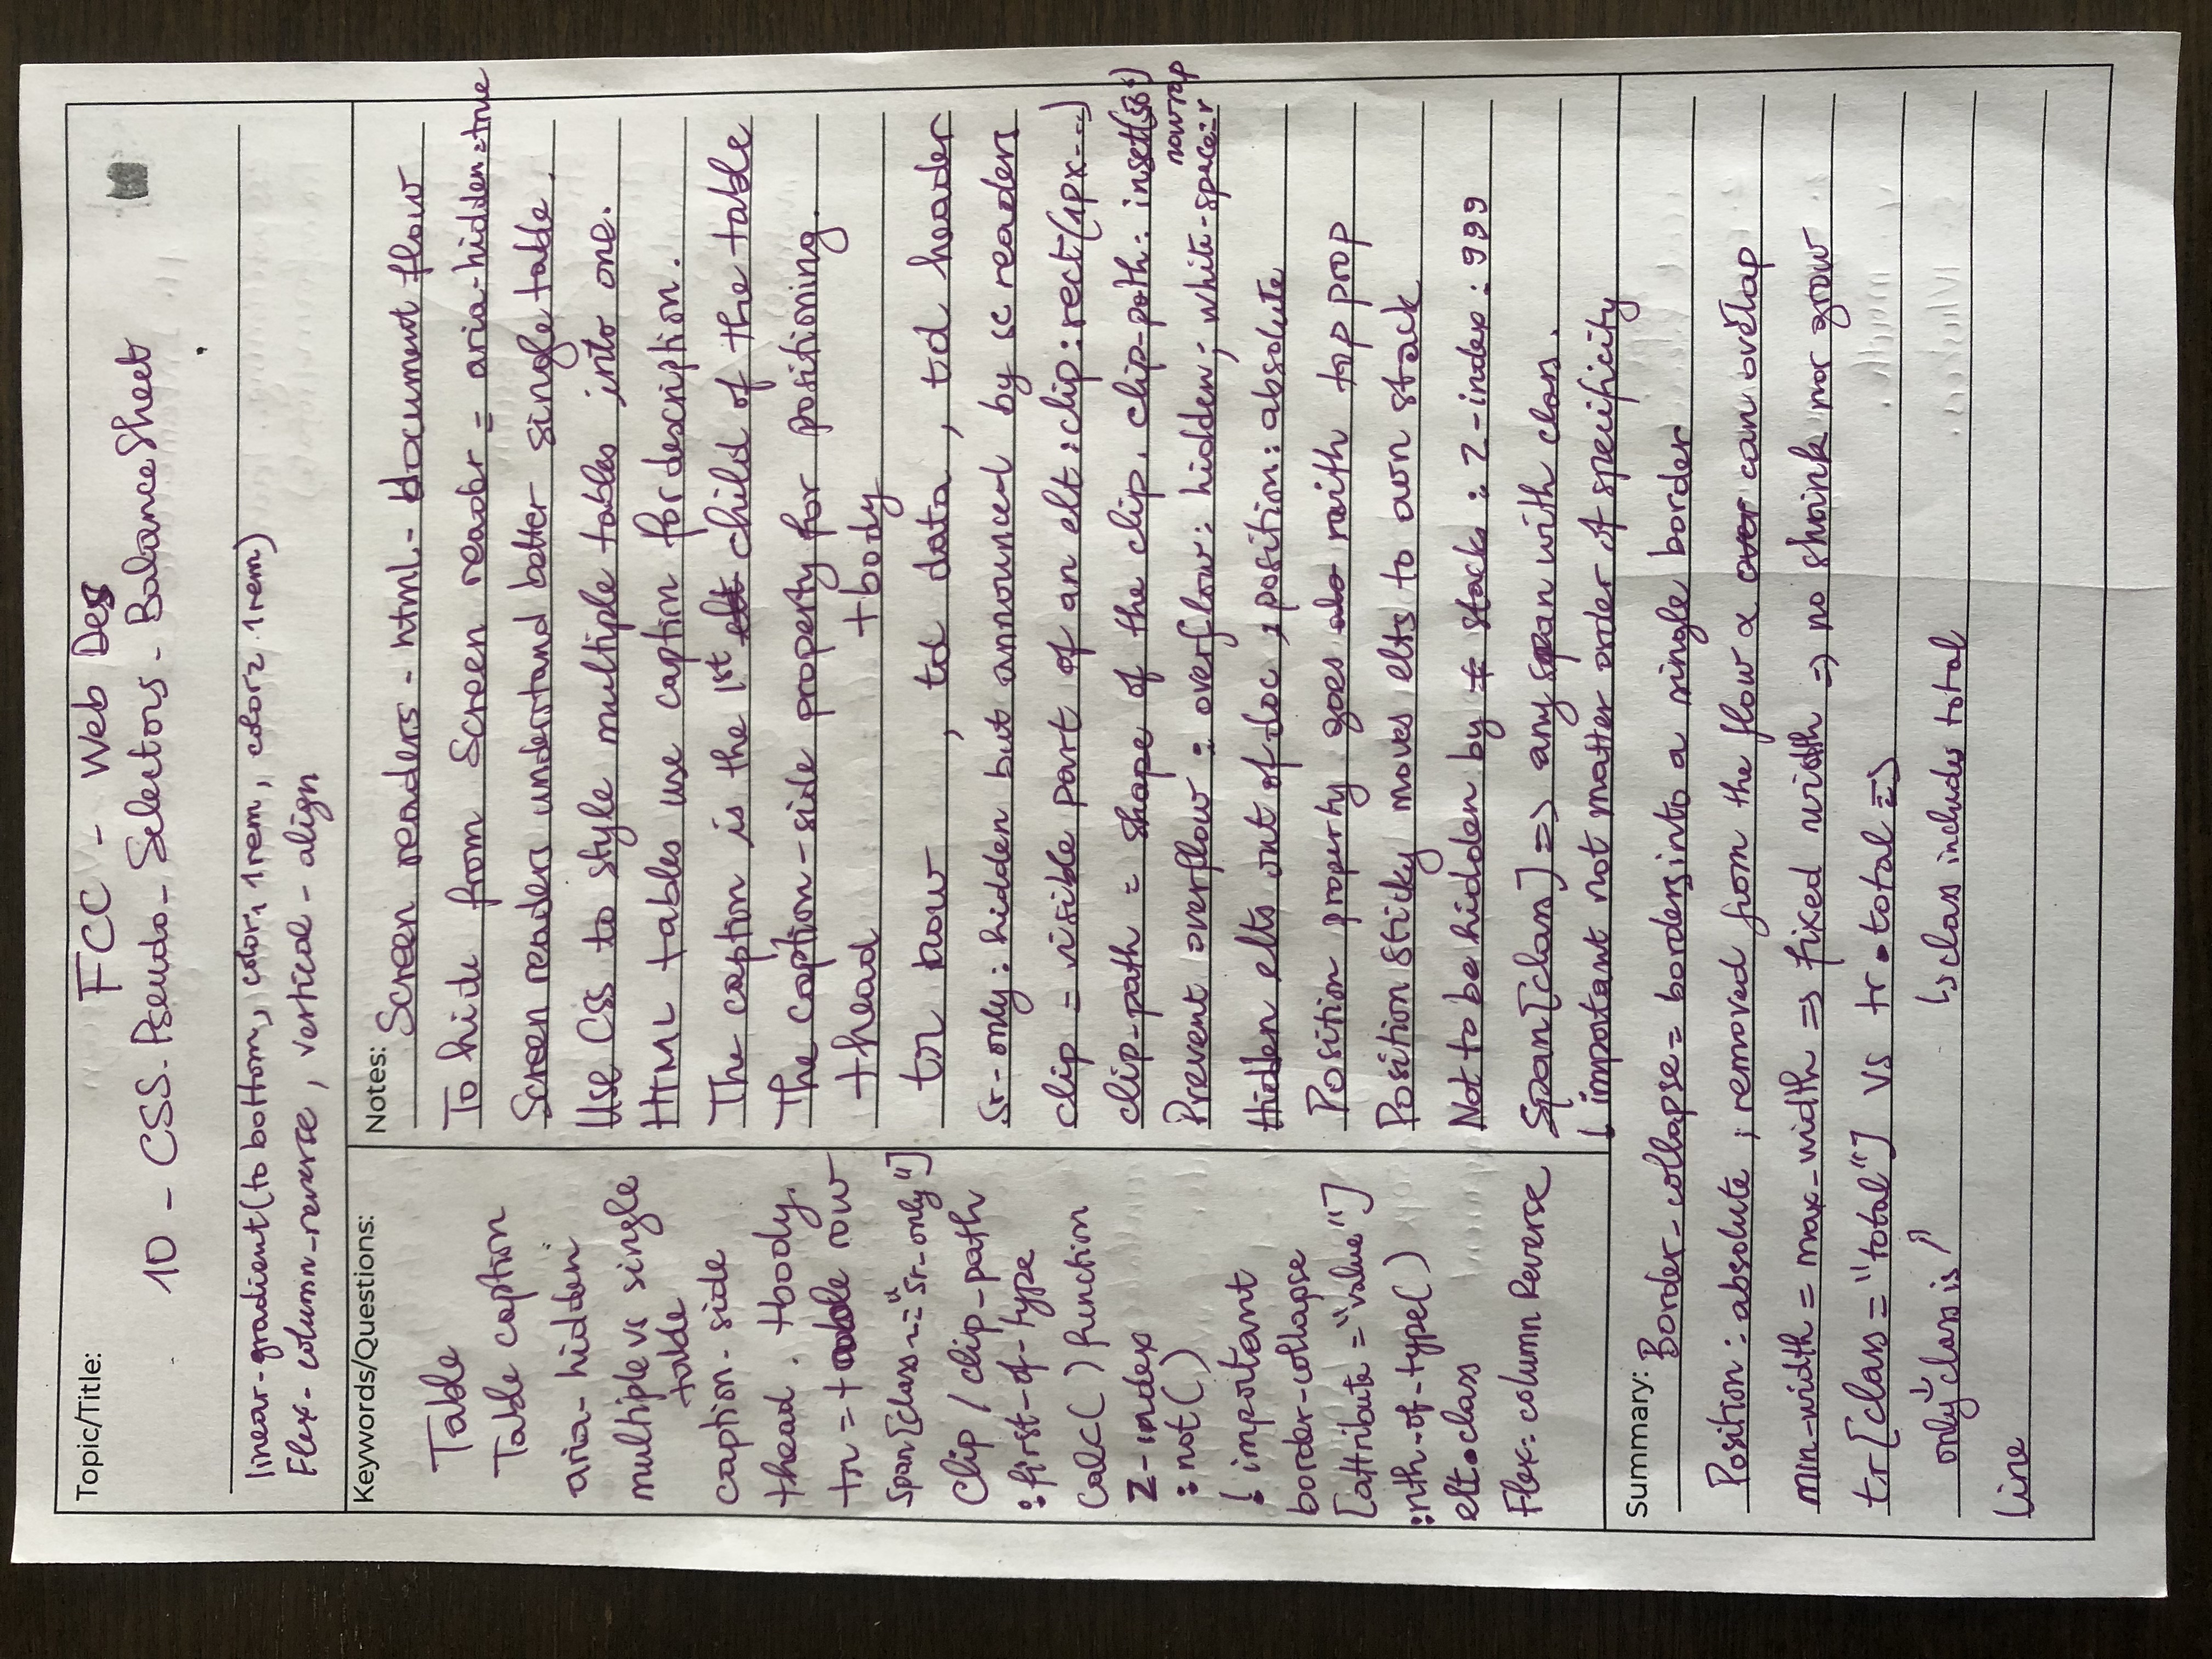 Topic/Title:
FCC - Web Des
10 - CSS-Pseudo-Selectors-BalanceSheet
linear-gradient(to bottom, color1 1rem, color2 1rem)
Flex-column-reverse, vertical-align
Keywords/Questions:
Table
Table caption
aria-hidden
multiple vs single
table
caption-side
thead . tbody.
tr = table row
span[class~="sr-only"]
Clip / clip-path
:first-of-type
Calc( ) function
Z-index
:not( )
! important
border-collapse
[attribute = "value"]
:nth-of-type( )
elt.class
Flex: column Reverse
Notes:
Screen readers - html - document flow
To hide from Screen reader = aria-hidden=true
Screen readers understand better single table.
Use CSS to style multiple tables into one.
HTML tables use caption for description.
The caption is the 1st elt child of the table
The caption-side property for positioning.
thead tbody
tr row , td data , td header
Sr-only: hidden but announced by sc readers
clip = visible part of an elt : clip: rect(1px---)
clip-path = shape of the clip. clip-path: inset(50%)
nowrap
Prevent overflow : overflow: hidden; white-space:
Hidden elts out of doc ; position: absolute
Position property goes with top prop
Position sticky moves elts to own stack
Not to be hidden by ≠ stacks : Z-index: 999
Span[class] => any span with class.
! important not matter order of specificity
Summary:
Border-collapse = borders into a single border
Position: absolute ; removed from the flow & over can overlap
min-width = max-width => fixed width => no shrink nor grow
tr[class = "total"] VS tr.total =>
only class is ↗ ↳ class includes total
line